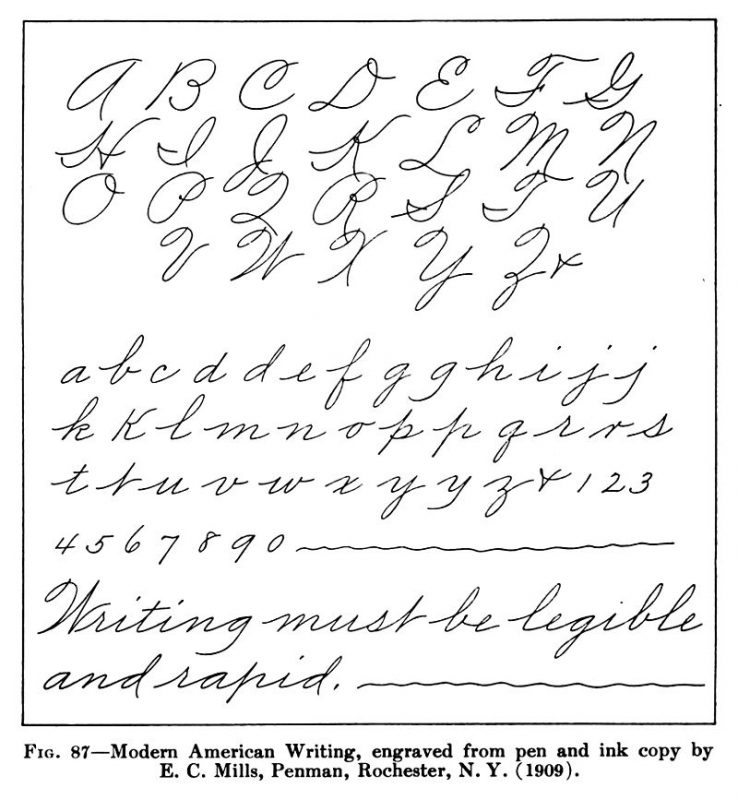 A B C D E F G
H I J K L M N
O P Q R S T U
V W X Y Z &
a b c d d e f g g h i j j
k k l m n o p p q r r s
t t u v w x y y z & 1 2 3
4 5 6 7 8 9 0
Writing must be legible
and rapid.
FIG. 87—Modern American Writing, engraved from pen and ink copy by
E. C. Mills, Penman, Rochester, N. Y. (1909).